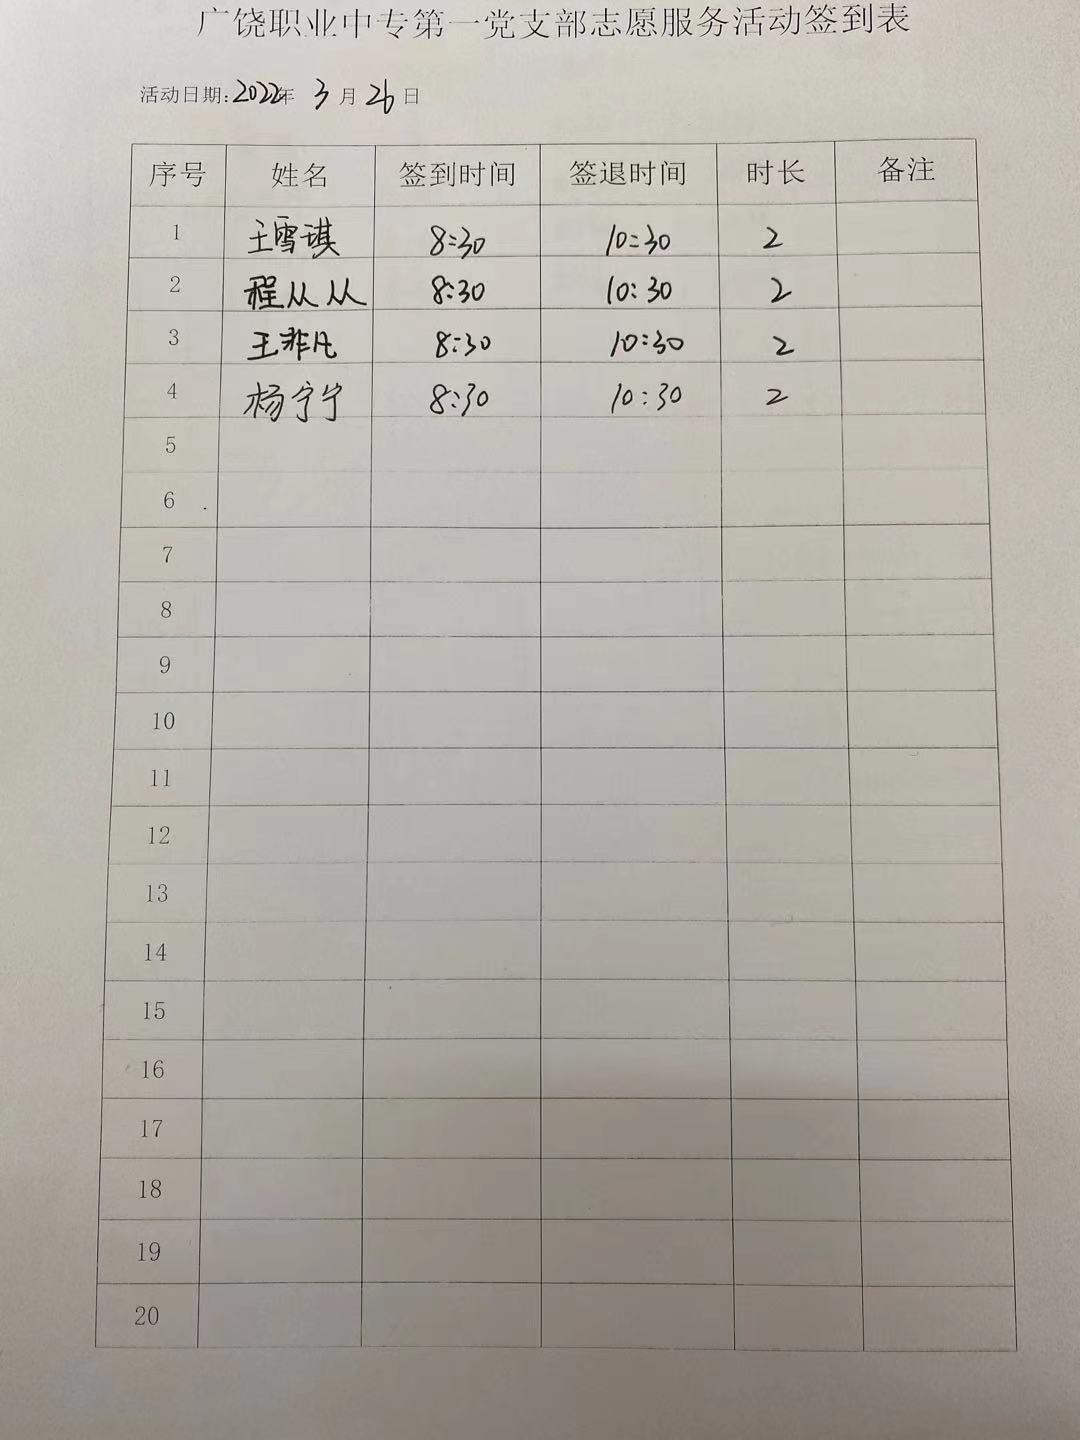 广饶职业中专第一党支部志愿服务活动签到表
活动日期:2022年 3 月 26 日
序号 姓名 签到时间 签退时间 时长 备注
1 王雪琪 8:30 10:30 2
2 程从从 8:30 10:30 2
3 王非凡 8:30 10:30 2
4 杨宁宁 8:30 10:30 2
5
6
7
8
9
10
11
12
13
14
15
16
17
18
19
20